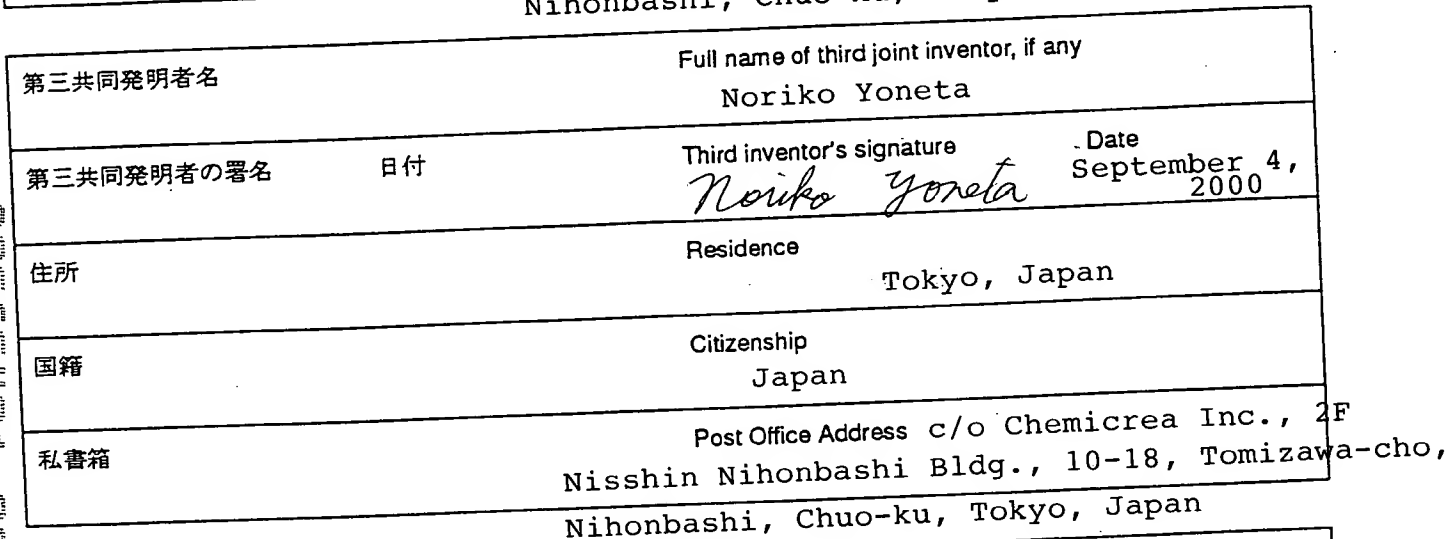 Nihonbashi, Chuo-ku,
第三共同発明者名 Full name of third joint inventor, if any
Noriko Yoneta
第三共同発明者の署名 日付 Third inventor's signature Date
Noriko Yoneta September 4,
2000
住所 Residence
Tokyo, Japan
国籍 Citizenship
Japan
私書箱 Post Office Address c/o Chemicrea Inc., 2F
Nisshin Nihonbashi Bldg., 10-18, Tomizawa-cho,
Nihonbashi, Chuo-ku, Tokyo, Japan